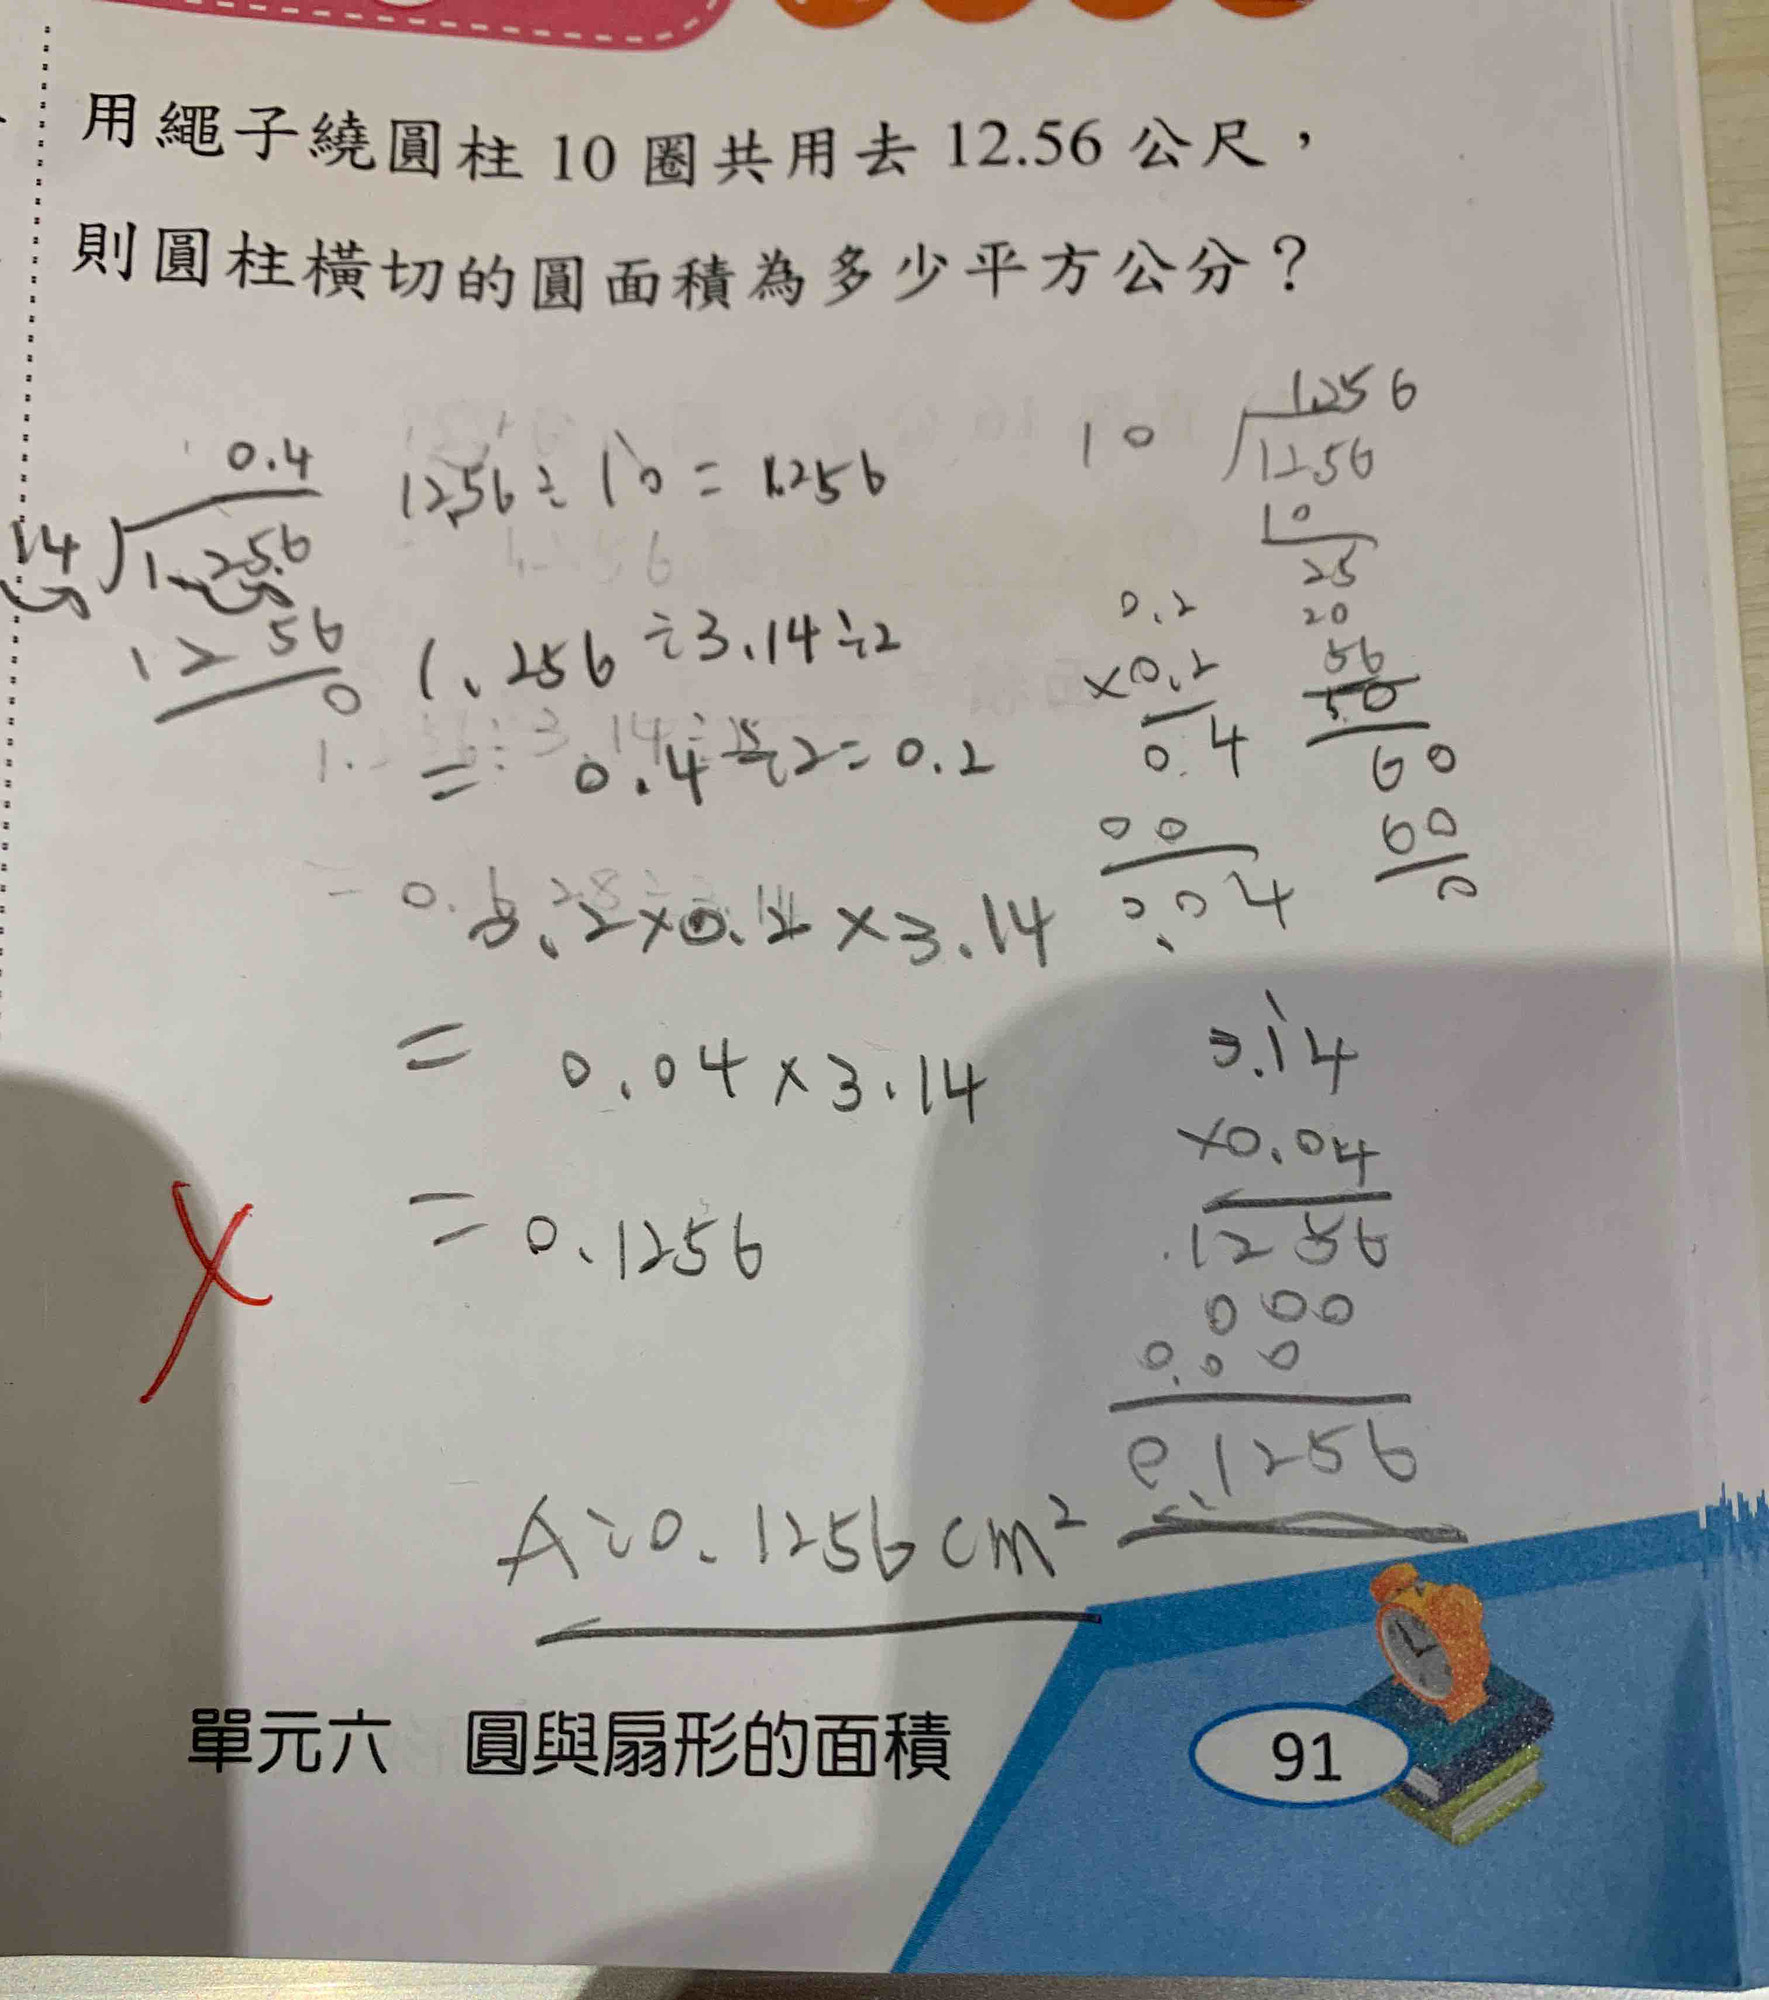 用繩子繞圓柱 10 圈共用去 12.56 公尺，
則圓柱橫切的圓面積為多少平方公分？
12.56 ÷ 10 = 1.256
1.256 ÷ 3.14 ÷ 2
= 0.4 ÷ 2 = 0.2
0.2 × 0.2 × 3.14
= 0.04 × 3.14
= 0.1256
A：0.1256 cm²
0.4
14
1.256
1256
0
1.256
10
1256
10
25
20
56
50
60
60
0
0.2
×0.2
0.4
00
0.04
3.14
×0.04
1256
000
0.00
0.1256
單元六 圓與扇形的面積
91